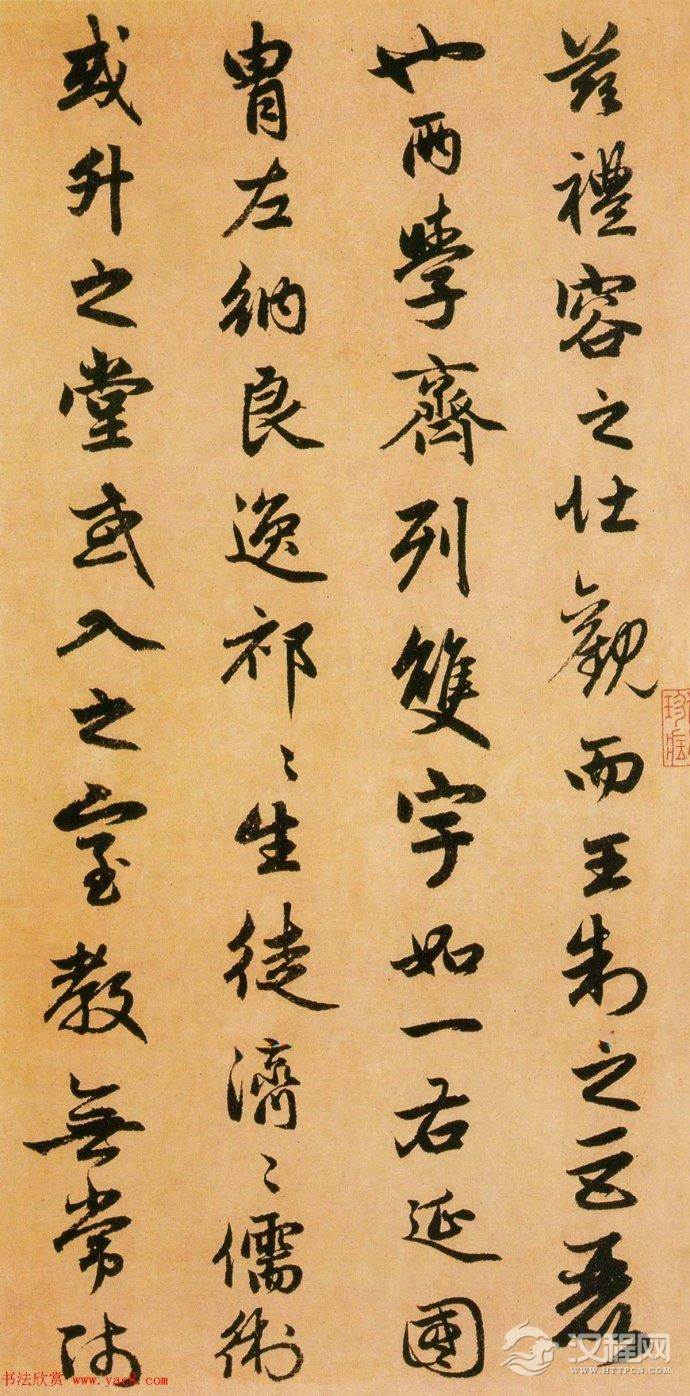 茲禮容之壯觀而王制之巨麗
也兩學齊列雙宇如一右延國
胄左納良逸祁〻生徒濟〻儒術
或升之堂或入之室教無常師
书法欣赏 www.yac8.com
汉程网
WWW.HTTPCN.COM